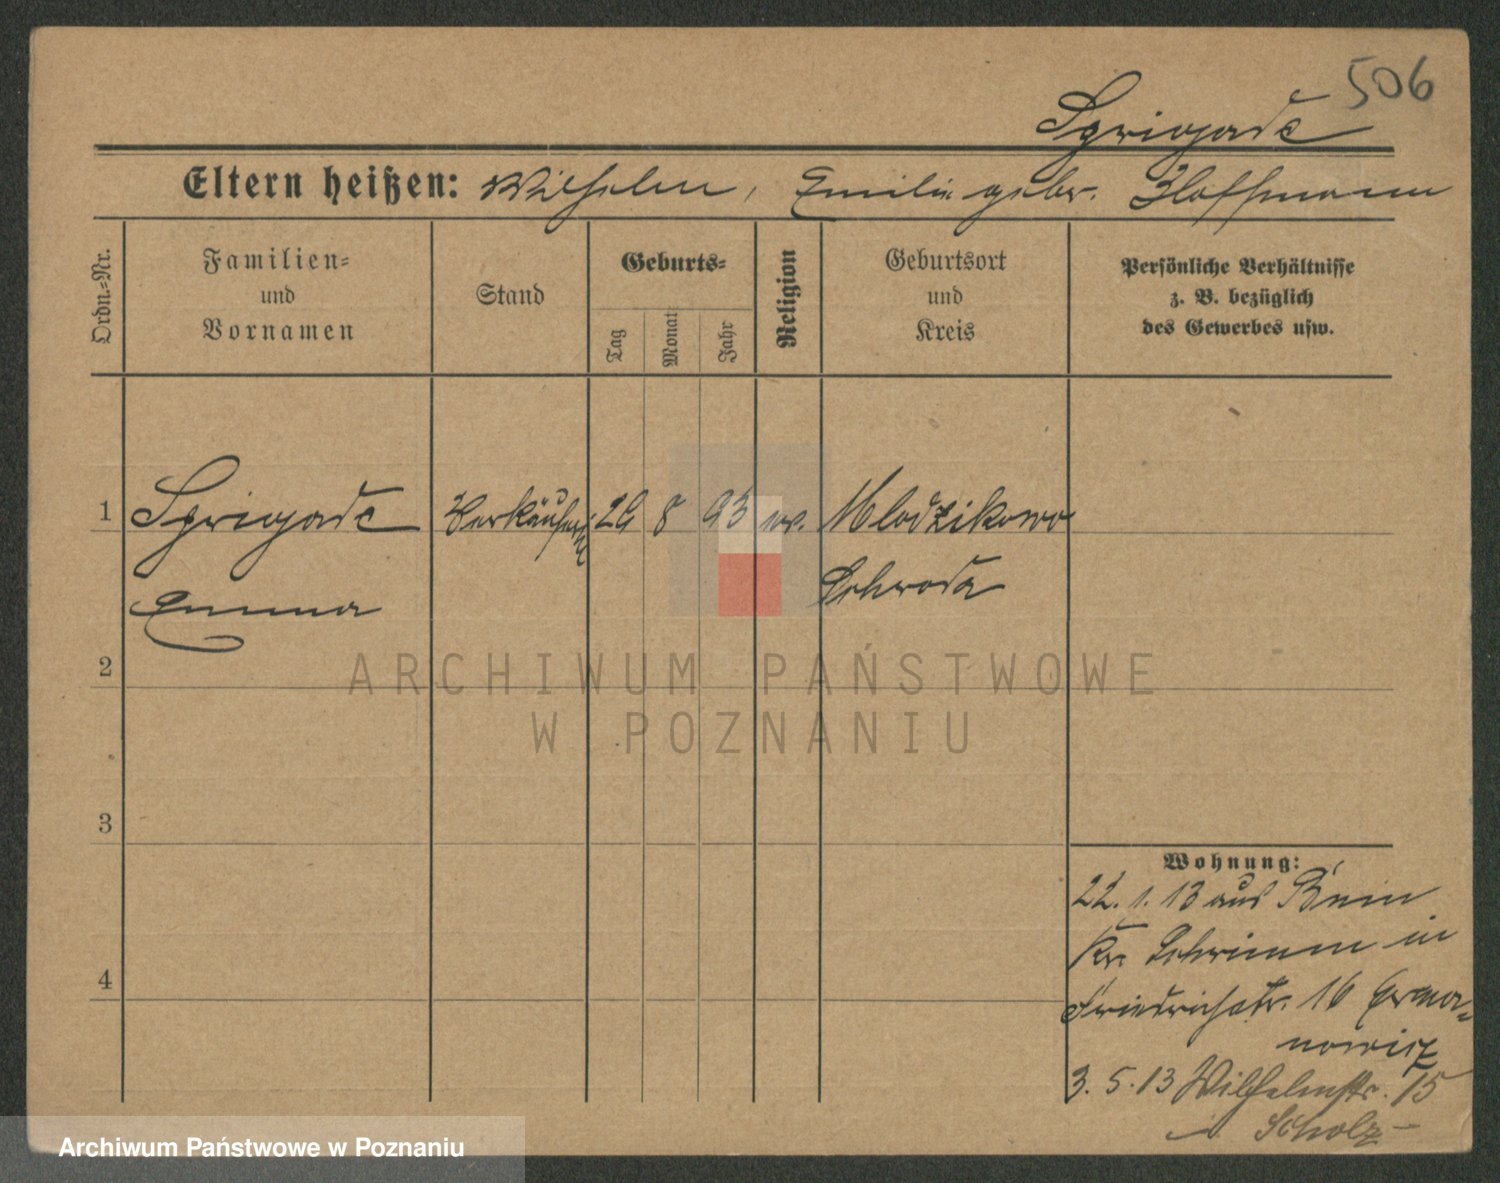 506
Sprigade
Eltern heißen: Wilhelm, Emilie gebr. Hoffmann
Ordn.-Nr.
Familien-
und
Vornamen
Stand
Geburts-
Tag
Monat
Jahr
Religion
Geburtsort
und
Kreis
Persönliche Verhältnisse
z. B. bezüglich
des Gewerbes usw.
1 Sprigade Verkäuferin 29 8 93 ev. Mlodzikowo
Emma Schroda
2
3
4
Wohnung:
22. 1. 13 aus Bnin
Kr. Schrimm in
Friedrichstr. 16 Germa-
nowicz
3. 5. 13 Wilhelmstr. 15
Scholz
ARCHIWUM PAŃSTWOWE
W POZNANIU
Archiwum Państwowe w Poznaniu